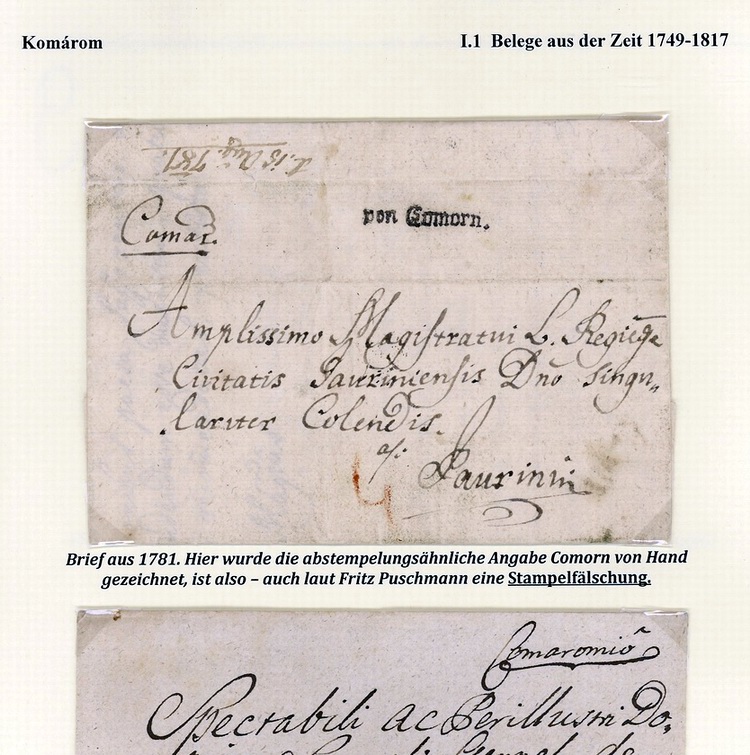 Komárom
I.1 Belege aus der Zeit 1749-1817
d. 18 Aug. 781.
von Comorn.
Comar.
Amplissimo Magistratui L. Regięqe
Civitatis Jauriniensis Dno singu„
lariter Colendis.
a/:
4
Jaurinii
Brief aus 1781. Hier wurde die abstempelungsähnliche Angabe Comorn von Hand
gezeichnet, ist also – auch laut Fritz Puschmann eine Stampelfälschung.
Comaromió
Spectabili ac Perillustri Do-